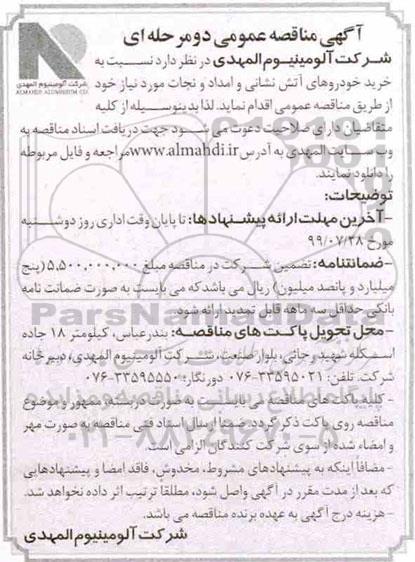 آگهی مناقصه عمومی دو مرحله ای
شرکت آلومینیوم المهدی در نظر دارد نسبت به
خرید خودروهای آتش نشانی و امداد و نجات مورد نیاز خود
از طریق مناقصه عمومی اقدام نماید. لذا بدینوسیله از کلیه
متقاضیان دارای صلاحیت دعوت می شود جهت دریافت اسناد مناقصه به
وب سایت المهدی به آدرس www.almahdi.ir مراجعه و فایل مربوطه
را دانلود نمایند.
توضیحات:
-آخرین مهلت ارائه پیشنهادها: تا پایان وقت اداری روز دوشنبه
مورخ ۹۹/۰۷/۲۸
-ضمانتنامه: تضمین شرکت در مناقصه مبلغ ۵,۵۰۰,۰۰۰,۰۰۰ (پنج
میلیارد و پانصد میلیون) ریال می باشد که می بایست به صورت ضمانت نامه
بانکی حداقل سه ماهه قابل تمدید ارائه شود.
-محل تحویل پاکت های مناقصه: بندرعباس، کیلومتر ۱۸ جاده
اسکله شهید رجائی، بلوار صنعت، شرکت آلومینیوم المهدی، دبیرخانه
شرکت. تلفن: ۳۳۵۹۵۰۲۱-۰۷۶ دورنگار: ۳۳۵۹۵۵۵۰-۰۷۶
- کلیه پاکت های مناقصه می بایست به صورت دربسته و ممهور و موضوع
مناقصه روی پاکت ذکر گردد. ضمنا ارسال اسناد فنی مناقصه به صورت مهر
و امضاء شده از سوی شرکت کنندگان الزامی است.
- مضافاً اینکه به پیشنهادهای مشروط، مخدوش، فاقد امضا و پیشنهادهایی
که بعد از مدت مقرر در آگهی واصل شود، مطلقا ترتیب اثر داده نخواهد شد.
- هزینه درج آگهی به عهده برنده مناقصه می باشد.
شرکت آلومینیوم المهدی
شرکت آلومینیوم المهدی
ALMAHDI ALUMINIUM CO.
ParsNamadData